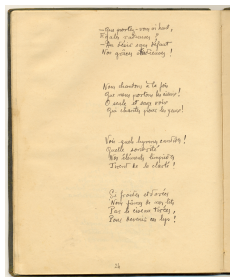 — Que portez-vous si haut,
Égales radieuses ?
— Un désir sans défaut
Nos grâces studieuses !
Nous chantons à la fois
Que nous portons les cieux !
Ô seule et sage voix
Qui chantes pour les yeux !
Vois quels hymnes candides !
Quelle sonorité
Nos éléments limpides
Tirent de la clarté !
Si froides et dorées
Nous fûmes de nos lits
Par le ciseau tirées,
Pour devenir ces lys !